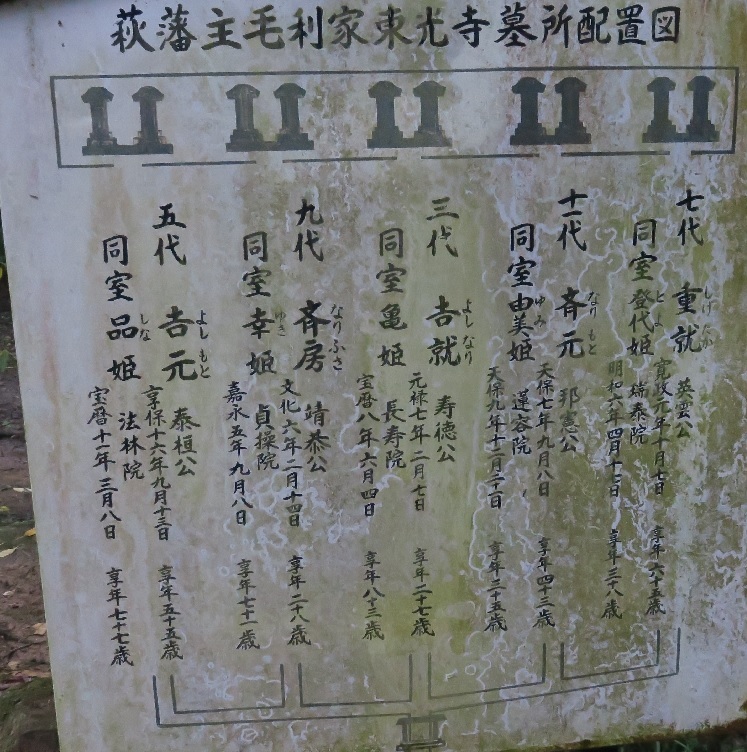 萩藩主毛利家東光寺墓所配置図
七代 重就 英雲公 寛政元年十月七日 享年六十五歳
しげ たか
同室 登代姫 瑞泰院 明和六年四月十二日 享年三十八歳
とよ
十一代 斉元 邦憲公 天保七年九月八日 享年四十三歳
なり もと
同室 由美姫 蓮容院 天保九年十二月三十日 享年三十五歳
ゆみ
三代 吉就 寿徳公 元禄七年二月七日 享年二十七歳
よし なり
同室 亀姫 長寿院 宝暦八年六月四日 享年八十三歳
九代 斉房 靖恭公 文化六年二月十四日 享年二十八歳
なり ふさ
同室 幸姫 貞操院 嘉永五年九月八日 享年七十一歳
ゆき
五代 吉元 泰桓公 享保十六年九月十三日 享年五十五歳
よし もと
同室 品姫 法林院 宝暦十一年三月八日 享年七十七歳
しな